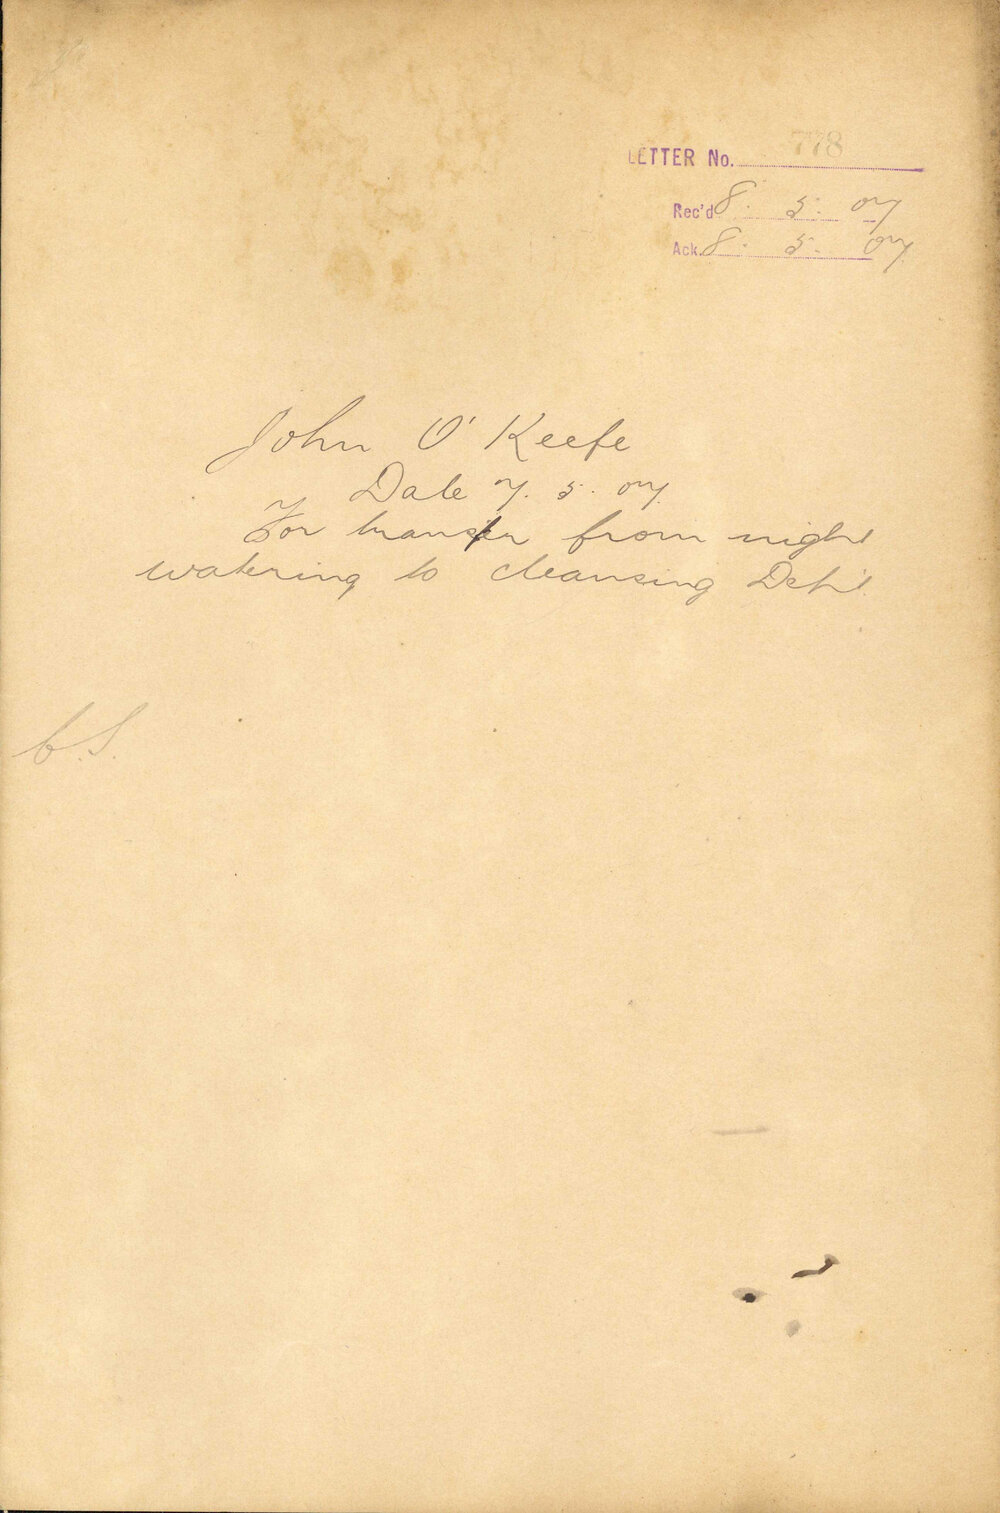 LETTER No. 778
Rec'd 8. 5. 07
Ack. 8. 5. 07
John O'Keefe
Date 7. 5. 07
For transfer from night
watering to cleansing Dep't.